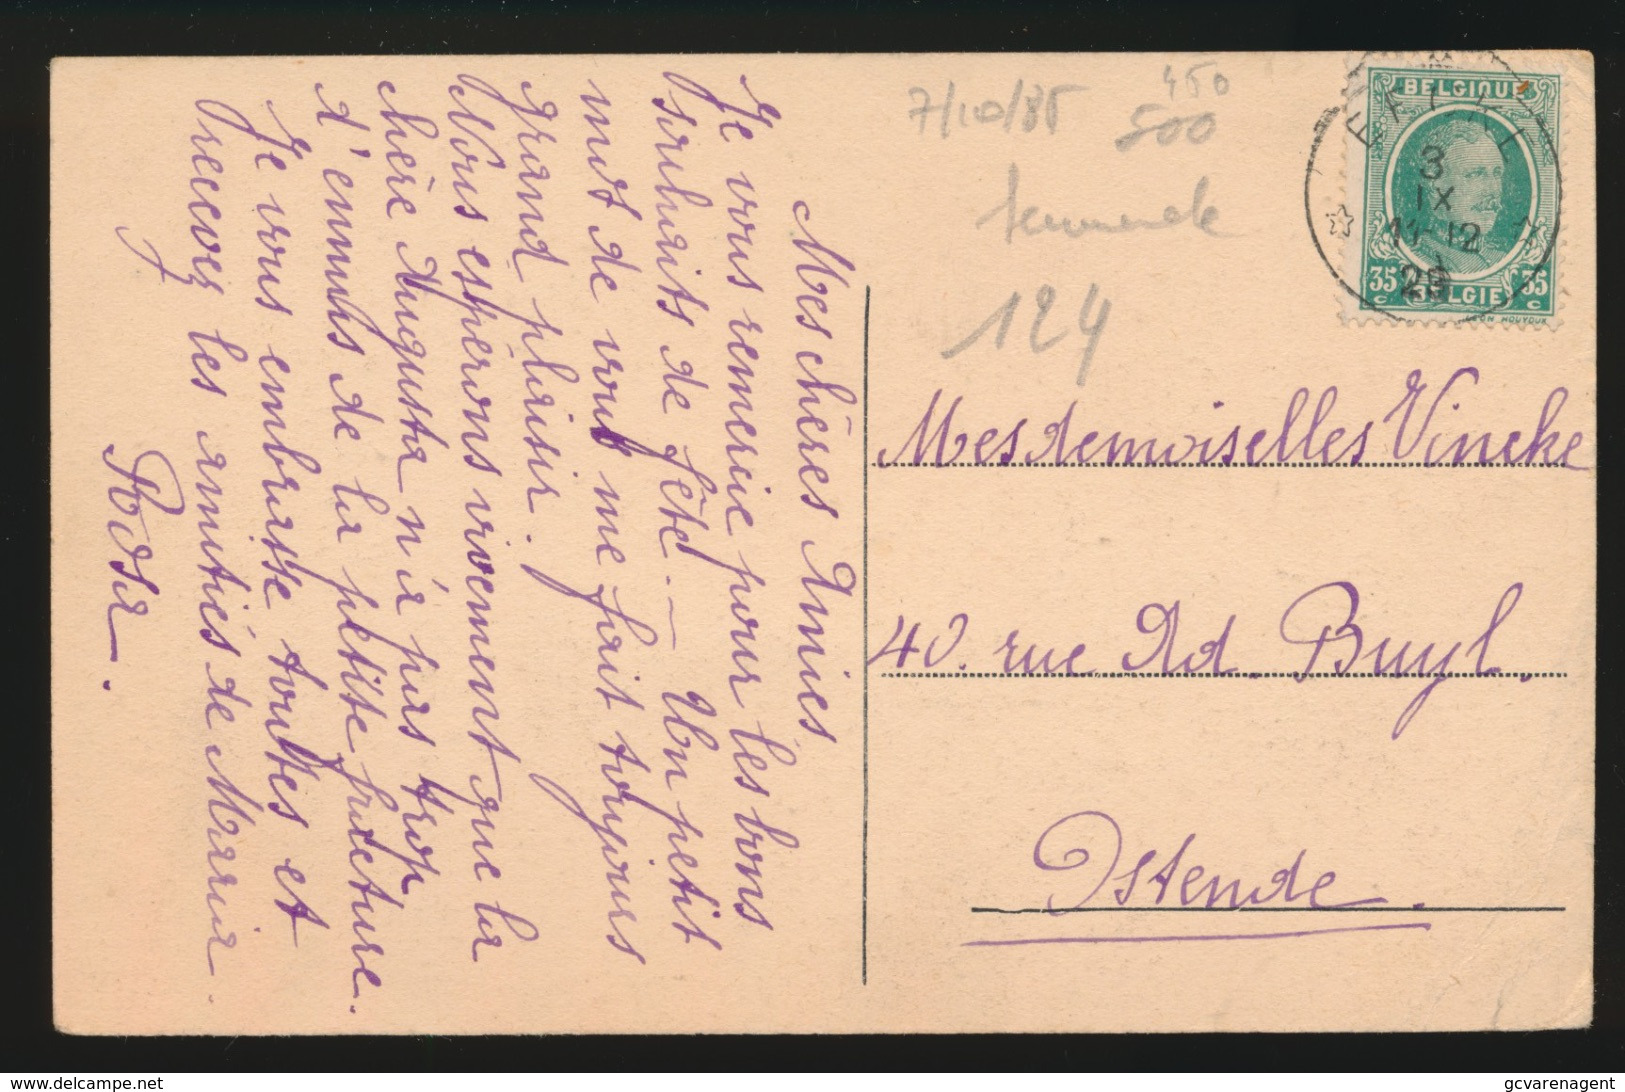 Mes chères Amies
Je vous remercie pour les bons
souhaits de fête — Un petit
mot de vous me fait toujours
grand plaisir.
Nous espérons vivement que la
chère Augusta n'a pas trop
d'ennuis de la petite fracture.
Je vous embrasse toutes et
recevez les amitiés de Maria.
Rosa.
7/10/85
450
500
124
BELGIQUE
3
IX
11-12
35 BELGIE 35
c c
Mesdemoiselles Vincke
40. rue Ad. Buyl.
Ostende.
delcampe.net
gcvarenagent